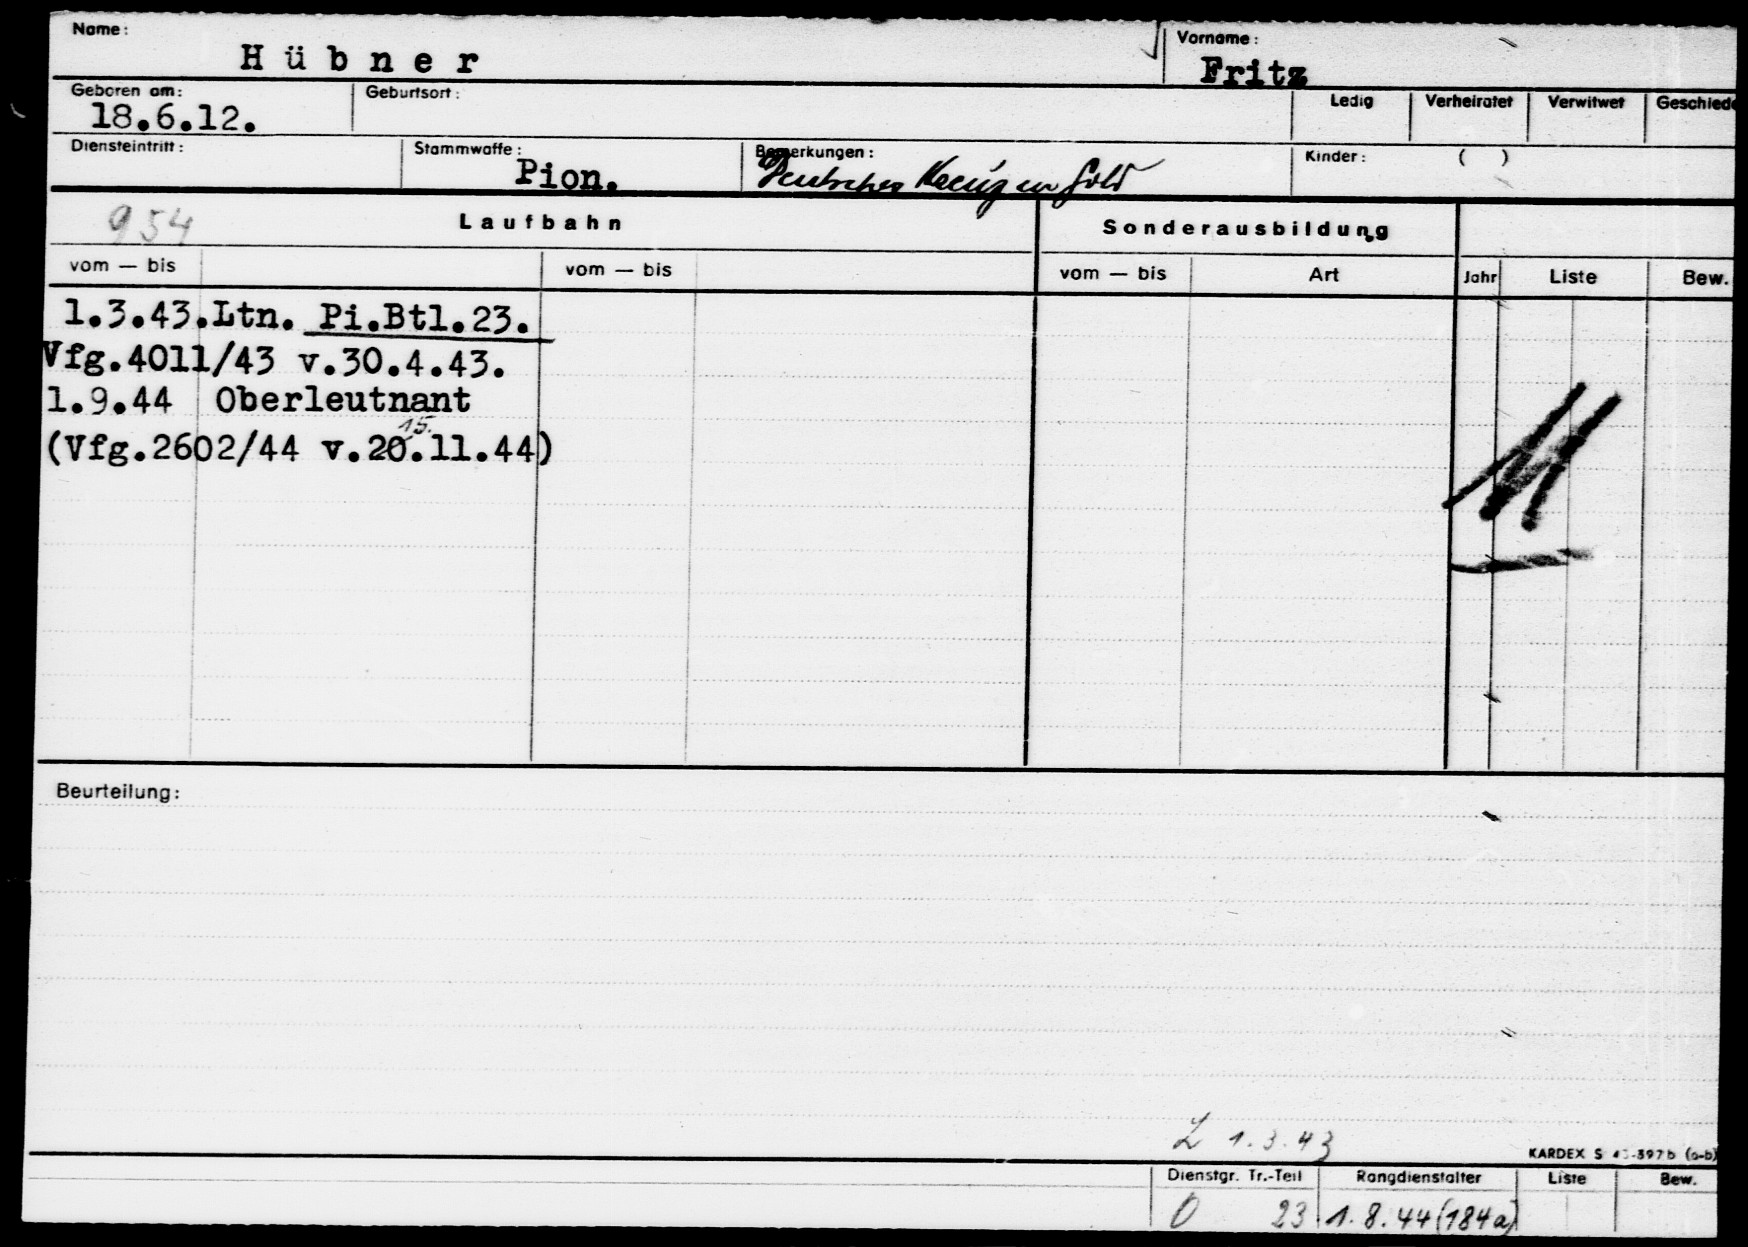 Name: Vorname:
Hübner Fritz
Geboren am: Geburtsort: Ledig Verheiratet Verwitwet Geschiede
18.6.12.
Diensteintritt: Stammwaffe: Bemerkungen: Kinder: ( )
Pion. Deutsches Kreuz in Gold
954 Laufbahn Sonderausbildung
vom — bis vom — bis vom — bis Art Jahr Liste Bew.
1.3.43.Ltn. Pi.Btl.23.
Vfg.4011/43 v.30.4.43.
1.9.44 Oberleutnant
15.
(Vfg.2602/44 v.20.11.44)
Beurteilung:
L 1.3.43
KARDEX S
-397b (a-b)
Dienstgr. Tr.-Teil Rangdienstalter Liste Bew.
O 23 1.8.44 (184a)